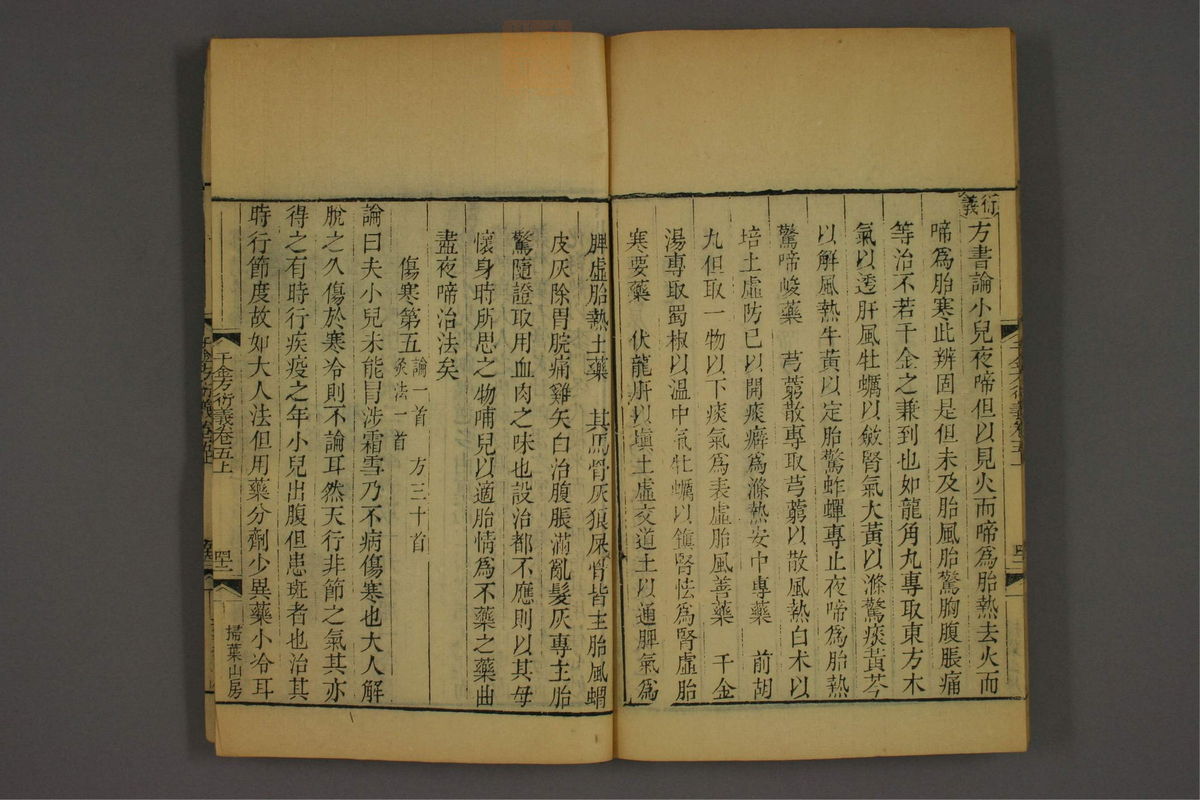 衍義
方書論小兒夜啼但以見火而啼爲胎熱去火而
啼爲胎寒此辨固是但未及胎風胎驚胸腹脹痛
等治不若千金之兼到也如龍角丸專取東方木
氣以透肝風牡蠣以斂腎氣大黃以滌驚痰黃芩
以解風熱牛黃以定胎驚蚱蟬專止夜啼爲胎熱
驚啼峻藥 芎藭散專取芎藭以散風熱白朮以
培土虛防己以開痰癖爲滌熱安中專藥 前胡
丸但取一物以下痰氣爲表虛胎風善藥 千金
湯專取蜀椒以温中氣牡蠣以鎭腎怯爲腎虛胎
寒要藥 伏龍肝以塡土虛交道土以通脾氣爲
脾虛胎熱土藥 其馬骨灰狼屎骨皆主胎風蝟
皮灰除胃脘痛雞矢白治腹脹滿亂髮灰專主胎
驚隨證取用血肉之味也設治都不應則以其母
懷身時所思之物哺兒以適胎情爲不藥之藥曲
盡夜啼治法矣
傷寒第五 論一首 方三十首
灸法一首
論曰夫小兒未能冒涉霜雪乃不病傷寒也大人解
脫之久傷於寒冷則不論耳然天行非節之氣其亦
得之有時行疾疫之年小兒出腹但患斑者也治其
時行節度故如大人法但用藥分劑少異藥小冷耳
千金方衍義卷五上
掃葉山房